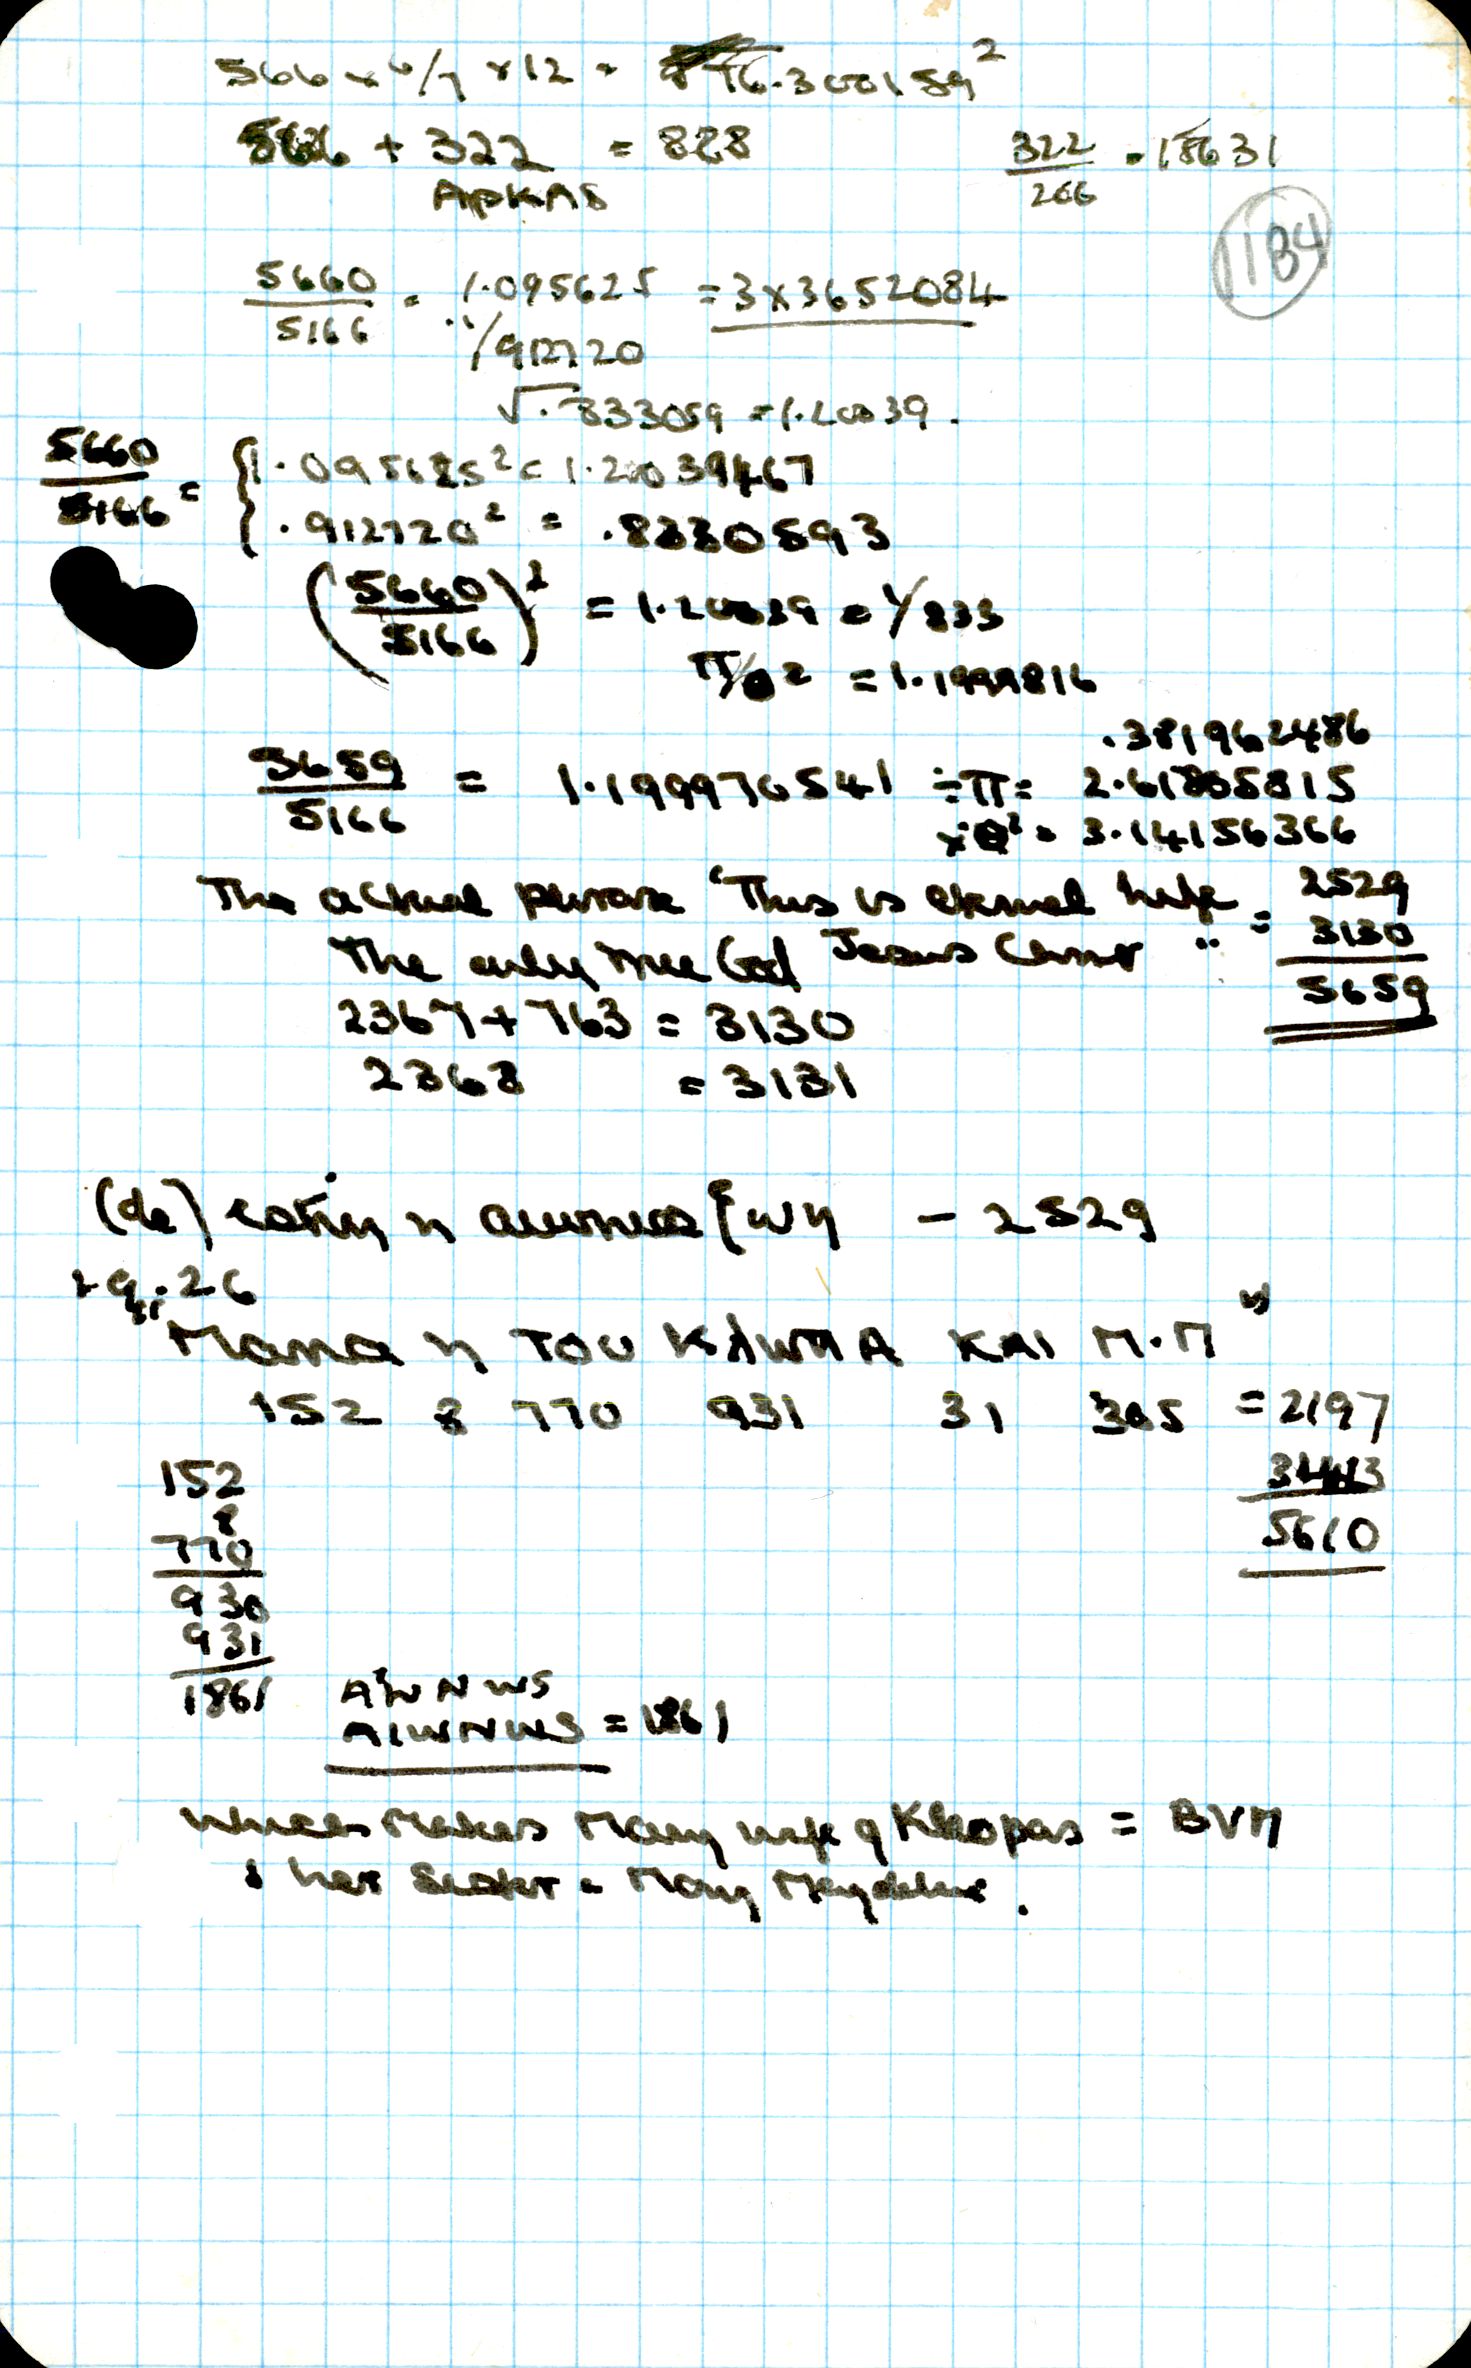 566 × 6/7 × 12 = 76.300159²
566 + 322 = 888
322/266 = .18631
APKAS
1184
5660/5166 = 1.095625 = 3×3652084
1/912720
√.833059 = 1.20039.
5660/5166 = { 1.095625² = 1.20039467
.912720² = .8330593
(5660/5166)² = 1.20039 = 1/833
π/θ² = 1.1999816
.381962486
5659/5166 = 1.199976541 ÷π= 2.61805815
×θ² = 3.14156366
The actual phrase "This is eternal life = 2529
the only true God Jesus Christ " 3130
5659
2367 + 763 = 3130
2368 = 3131
(de) estin η aiwnios ζwη - 2529
19:26
"Maria η TOU KλWΠA KAI M.M"
152 8 770 931 31 305 = 2197
152 3443
8 5610
770
930
931
1861 AIWNWS
AIWNWS = 1861
which makes Mary wife of Kleopas = BVM
& her Sister = Mary Magdalene.